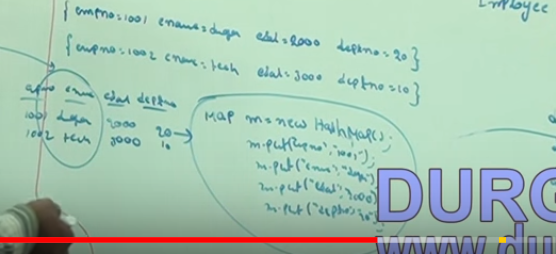 Employee
{ empno=1001 ename=durga esal=2000 deptno=20 }
{ empno=1002 ename= esal=3000 deptno=10 }
ename esal deptno
1001 durga 2000 20
1002 3000 10
Map m=new HashMap();
m.put("empno","1001");
m.put("ename","durga");
m.put("esal",2000);
m.put("deptno",20");
DURG
www.du